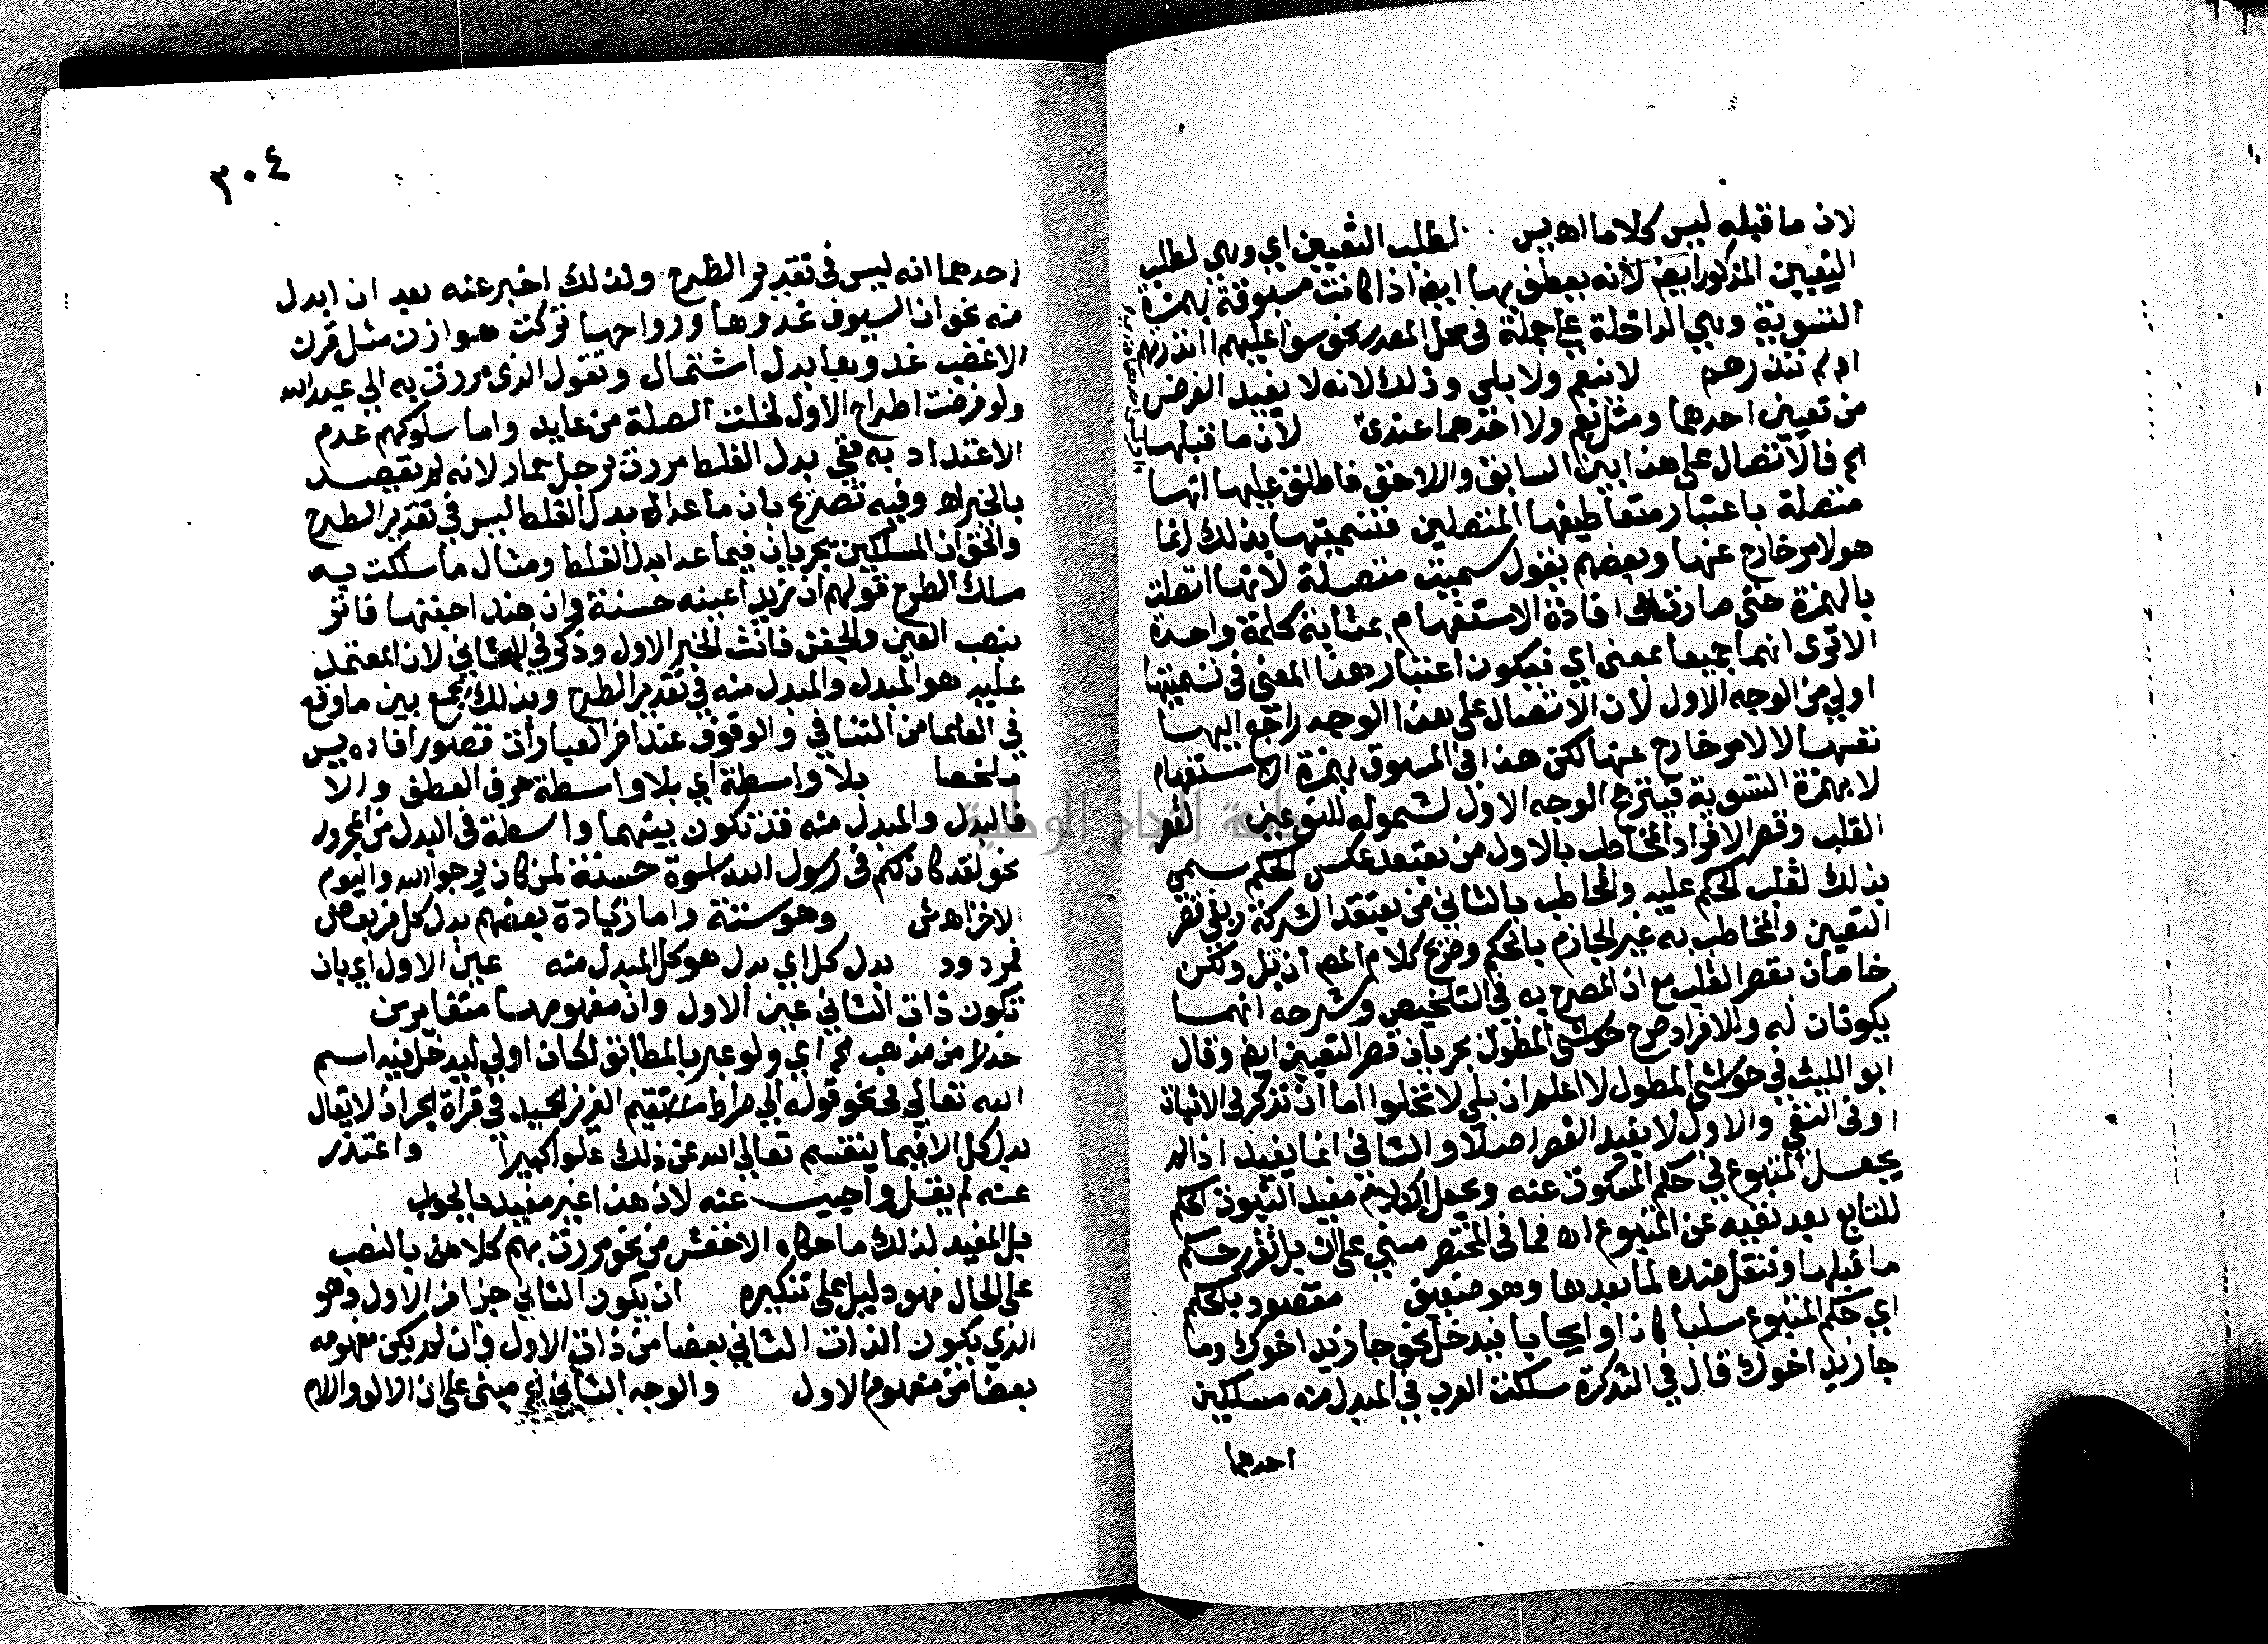 لان ما قبله ليس كلاما اهـ يس لطلب التعيين اي وهي لطلب
التعيين المذكور ايضا لانه يعطف بها ايض اذا كانت مسبوقة بهمزة
التسوية وهي الداخلة على جملة في محل المصدر نحو سوا عليهم اانذرتهم
ام لم تنذرهم لا بنعم ولا بلى وذلك لانه لا يفيد الغرض
من تعيين احدهما ومثل نعم ولا احدهما عندى لان ما قبلها
الخ فالاتصال على هذا بين السابق واللاحق فاطلق عليها انها
متصلة باعتبار متعاطفيها المتصلين فتسميتها بذلك انما
هو لامر خارج عنها وبعضهم يقول سميت متصلة لانها اتصلت
بالهمزة حتى صارتا فى افادة الاستفهام بمثابة كلمة واحدة
الا ترى انهما جميعا بمعنى اي فيكون اعتبار هذا المعنى في تسميتها
اولى من الوجه الاول لان الاتصال على هذا الوجه راجع اليها
نفسها لا لامر خارج عنها لكن هذا في المسبوق بهمزة الاستفهام
لا بهمزة التسوية فيترجح الوجه الاول لشموله للنوعين لقصر
القلب وقصر الافراد المخاطب بالاول من يعتقد عكس الحكم سمى
بذلك لقلب الحكم عليه والمخاطب بالثاني من يعتقد الشركة وبقي قصر
التعيين والمخاطب به غير الجازم بالحكم وصريح كلام المصـ ان بل ولكن
خاصان بقصر القلب مع ان المصرح به في التلخيص وشرحه انهما
يكونان له وللافراد صرح حواشى المطول بجريان قصر التعيين ايض وقال
ابو الليث في حواشي المطول لا اعلم ان بل لا تخلوا اما ان تذكر في الاثبات
او في النفي والاول لا يفيد القصر اصلا والثاني انما يفيد اذا لم
يجعل المتبوع في حكم المسكوت عنه ويجعل الكلام مفيد الثبوت الحكم
للتابع بعد نفيه عن المتبوع اهـ فما في المختصر مبني على ان بل تقرر حكم
ما قبلها وتنقل ضده لما بعدها وهو ضعيف مقصود بالحكم
اي حكم المتبوع سلبا كان او ايجابا فيدخل نحو جا زيد اخوك وما
جا زيد اخوك قال في التذكرة سلكت العرب في المبدل منه مسلكين
احدهما
٣٠٤
احدهما انه ليس في تقدير الطرح ولذلك اخبر عنه بعد ان ابدل
منه نحو ان السيوف غدوها ورواحها تركت هوازن مثل قرن
الاغضب غدوها بدل اشتمال وتقول الذى مررت به ابي عبد الله
ولو فرضت اطراح الاول لخلت الصلة من عايد واما سلوكهم عدم
الاعتداد به ففي بدل الغلط مررت برجل حمار لانه لم يقصد
بالخبر اهـ وفيه تصريح بان ما عدا بدل الغلط ليس في تقدير الطرح
والحق ان المسلكين يجريان فيما عدا بدل الغلط ومثال ما سلكت فيه
مسلك الطرح قولهم ان زيدا عينه حسنة وان هندا جفنها فاتر
بنصب العين والجفن فانث الخبر الاول وذكر في الثاني لان المعتمد
عليه هو المبدل والمبدل منه في تقدير الطرح وبذلك يجمع بين ما وقع
في العلما من التنافي والوقوف عند اخر العبارات قصور افاده يس
ملخصا بلا واسطة اي بلا واسطة حرف العطف والا
فالبدل والمبدل منه قد تكون بينهما واسطة في البدل من المجرور
نحو لقد كان لكم في رسول الله اسوة حسنة لمن كان يرجوا الله واليوم
الاخر اهـ ش وهو ستة واما زيادة بعضهم بدل كل من بعض
فمردود بدل كل اي بدل هو كل المبدل منه عين الاول اي بان
تكون ذات الثاني عين الاول وان مفهومهما متغايرين
حذلا من مذهب الخ اي ولو عبر بالمطابق لكان اولي ليدخل فيه اسم
الله تعالي في نحو قوله الي صراط مستقيم العزيز الحميد في قراة الجر اذ لا يقال
بدل كل الا فيما ينقسم تعالي الله عن ذلك علوا كبيرا واعتذر
عنه لم يقل واجيب عنه لان هذا غير مفيد بالجواب
بل المفيد لذلك ما حكاه الاخفش من نحو مررت بهم كلا من بالنصب
على الحال فهو دليل على تنكيره ان يكون الثاني جزا من الاول وهو
الذي يكون الذات الثاني بعضا من ذات الاول وان لم يكن مفهومه
بعضا من مفهوم الاول والوجه الثاني اي مبني على ان الالف واللام